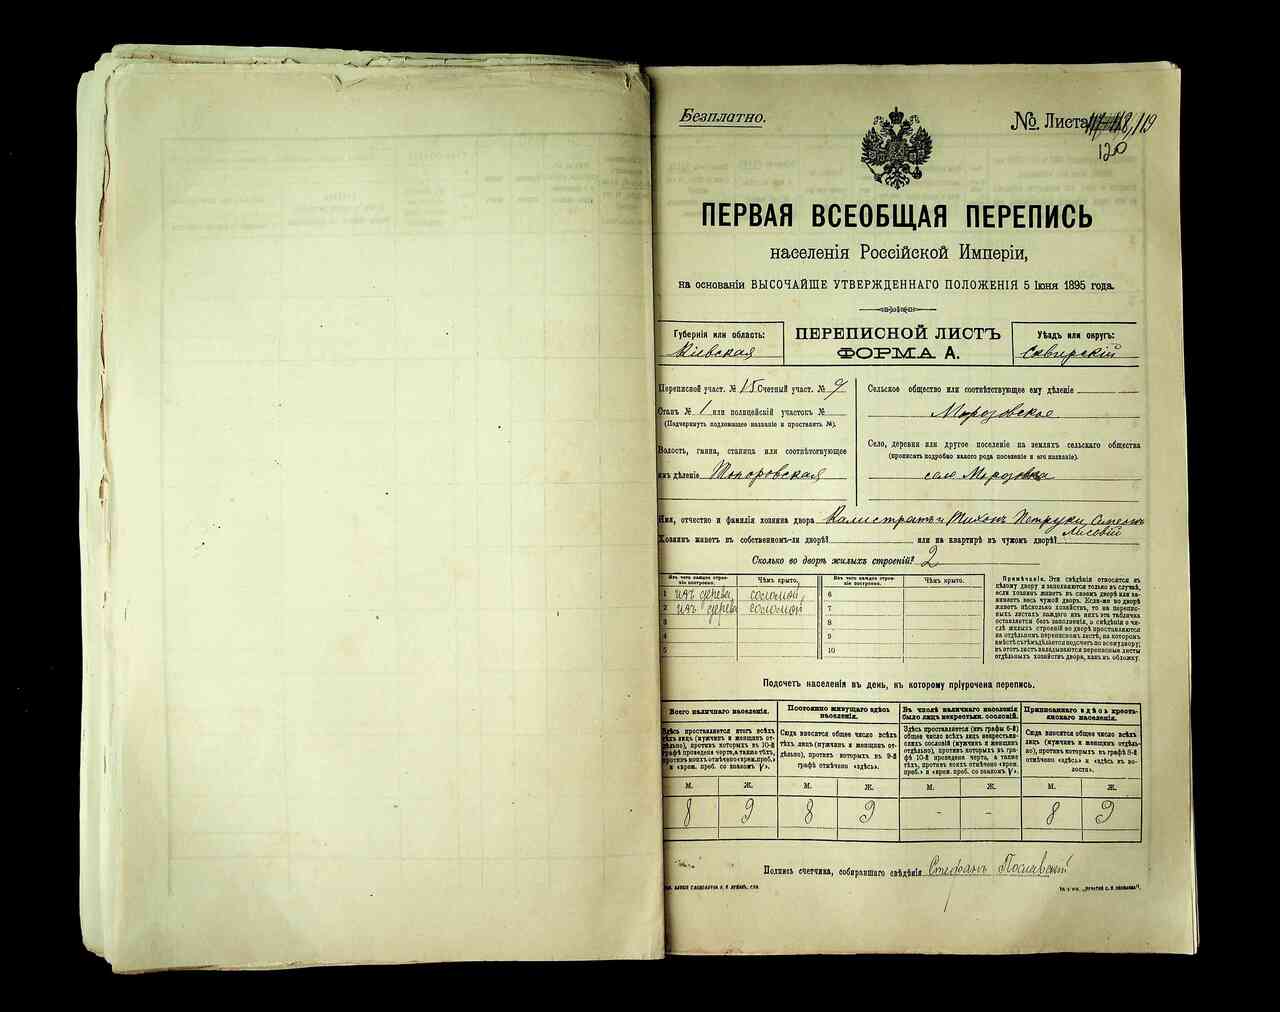 Безплатно.
№ Листа 118, 119
120
ПЕРВАЯ ВСЕОБЩАЯ ПЕРЕПИСЬ
населенія Россійской Имперіи,
на основаніи ВЫСОЧАЙШЕ УТВЕРЖДЕННАГО ПОЛОЖЕНІЯ 5 Іюня 1895 года.
Губернія или область:
Кіевская
ПЕРЕПИСНОЙ ЛИСТЪ
ФОРМА А.
Уѣздъ или округъ:
Сквирскій
Переписной участ. № 15 Счетный участ. № 9
Станъ № 1 или полицейскій участокъ №
(Подчеркнуть подлежащее названіе и проставить №).
Волость, гмина, станица или соотвѣтствующее
имъ дѣленіе Топоровская
Сельское общество или соотвѣтствующее ему дѣленіе
Морозовское
Село, деревня или другое поселеніе на земляхъ сельскаго общества
(прописать подробно какого рода поселеніе и его названіе).
село Морозовка
Имя, отчество и фамилія хозяина двора Калистратъ и Тихонъ Петруки,
Лисовій
Хозяинъ живетъ въ собственномъ-ли дворѣ? или на квартирѣ въ чужомъ дворѣ?
Сколько во дворѣ жилыхъ строеній? 2
Изъ чего каждое строеніе построено.
Чѣмъ крыто.
Изъ чего каждое строеніе построено.
Чѣмъ крыто.
1 изъ дерева, соломой, 6
2 изъ дерева соломой 7
3 8
4 9
5 10
Примѣчаніе. Эти свѣдѣнія относятся къ
цѣлому двору и заполняются только въ случаѣ,
если хозяинъ живетъ въ своемъ дворѣ или занимаетъ
весь чужой дворъ. Если-же во дворѣ
живетъ нѣсколько хозяйствъ, то на переписныхъ
листахъ каждаго изъ нихъ эта табличка
оставляется безъ заполненія, а свѣдѣнія о числѣ
жилыхъ строеній во дворѣ проставляются
на отдѣльномъ переписномъ листѣ, на которомъ
вмѣстѣ съ тѣмъ дѣлается подсчетъ по всему двору;
въ этотъ листъ вкладываются переписные листы
отдѣльныхъ хозяйствъ двора, какъ въ обложку.
Подсчетъ населенія въ день, къ которому пріурочена перепись.
Всего наличнаго населенія.
Здѣсь проставляется итогъ всѣхъ
тѣхъ лицъ (мужчинъ и женщинъ отдѣльно),
противъ которыхъ въ 10-й
графѣ проведена черта, а также тѣхъ,
противъ коихъ отмѣчено «врем. преб.»
и «врем. преб. со знакомъ V».
Постоянно живущаго здѣсь
населенія.
Сюда вносится общее число всѣхъ
тѣхъ лицъ (мужчинъ и женщинъ отдѣльно),
противъ которыхъ въ 9-й
графѣ отмѣчено «здѣсь».
Въ числѣ наличнаго населенія
было лицъ некрестьян. сословій.
Здѣсь проставляется (изъ графы 6-й)
общее число всѣхъ лицъ некрестьянскихъ
сословій (мужчинъ и женщинъ
отдѣльно), противъ которыхъ въ графѣ
10-й проведена черта, а также
тѣхъ, противъ коихъ отмѣчено «врем.
преб.» и «врем. преб. со знакомъ V».
Приписаннаго здѣсь крестьянскаго населенія.
Сюда вносится общее число всѣхъ
лицъ (мужчинъ и женщинъ отдѣльно),
противъ которыхъ въ графѣ 8-й
отмѣчено «здѣсь» и «здѣсь въ волости».
М. Ж. М. Ж. М. Ж. М. Ж.
8 9 8 9 - - 8 9
Подпись счетчика, собиравшаго свѣдѣнія Стефанъ